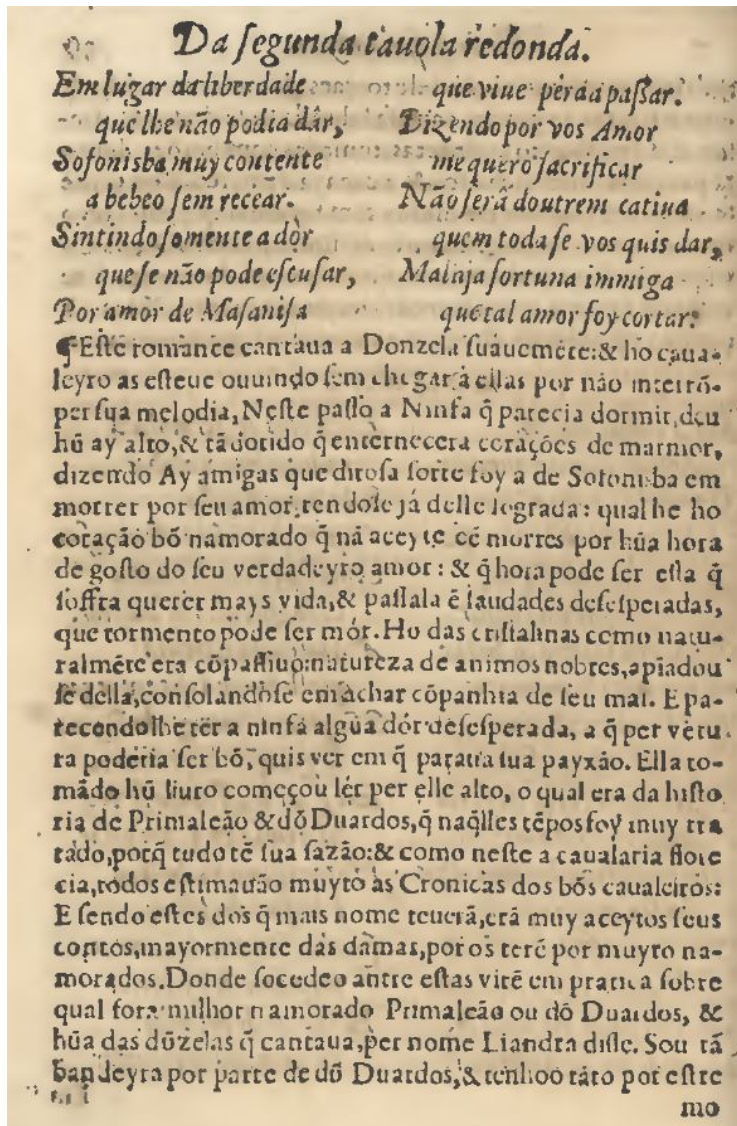 Da ſegunda tauola redonda.
Em lugar da liberdade
que lhe não podia dar,
Sofonisba muy contente
a bebeo ſem recear.
Sintindo ſomente a dor
que ſe não pode eſcuſar,
Por amor de Maſaniſa
que viue pera a paſſar.
Dizendo por vos Amor
me quero ſacrificar
Não ſerà doutrem catiua
quem toda ſe vos quis dar,
Mal aja fortuna immiga
que tal amor foy cortar.
¶Eſte romance cantaua a Donzela ſuauemẽte:& ho caua-
leyro as eſteue ouuindo ſem chegar à ellas por não interrõ-
per ſua melodia, Neſte paſſo a Ninfa q̃ parecia dormir, deu
hũ ay alto,& tã dorido q̃ enternecera corações de marmor,
dizendo Ay amigas que ditoſa ſorte foy a de Sofonisba em
morrer por ſeu amor, tendoſe já delle lograda: qual he ho
coração bõ namorado q̃ nã aceyte cẽ mortes por hũa hora
de goſto do ſeu verdadeyro amor: & q̃ hora pode ſer eſſa q̃
ſoffra querer mays vida,& paſſala ẽ ſaudades deſeſperadas,
que tormento pode ſer mór. Ho das criſtalinas como natu-
ralmẽte era cõpaſſiuo: natureza de animos nobres, apiadou
ſe della, conſolandoſe em achar cõpanhia de ſeu mal. E pa-
recendolhe ter a ninfa algũa dór deſeſperada, a q̃ per vẽtu-
ra poderia ſer bõ, quis ver em q̃ paraua ſua payxão. Ella to-
mãdo hũ liuro começou lér per elle alto, o qual era da hiſto
ria de Primaleão & dõ Duardos, q̃ naq̃lles tẽpos foy muy tra
tado, porq̃ tudo tẽ ſua ſazão:& como neſte a caualaria flore
cia, todos eſtimauão muyto às Cronicas dos bõs caualeiros:
E ſendo eſtes dos q̃ mais nome teuerã, erã muy aceytos ſeus
contos, mayormente das damas, por os terẽ por muyto na-
morados. Donde ſocedeo antre eſtas virẽ em pratica ſobre
qual fora milhor namorado Primaleão ou dõ Duardos, &
hũa das dõzelas q̃ cantaua, per nome Liandra diſſe. Sou tã
bandeyra por parte de dõ Duardos, & tenhoo tãto por eſtre
mo